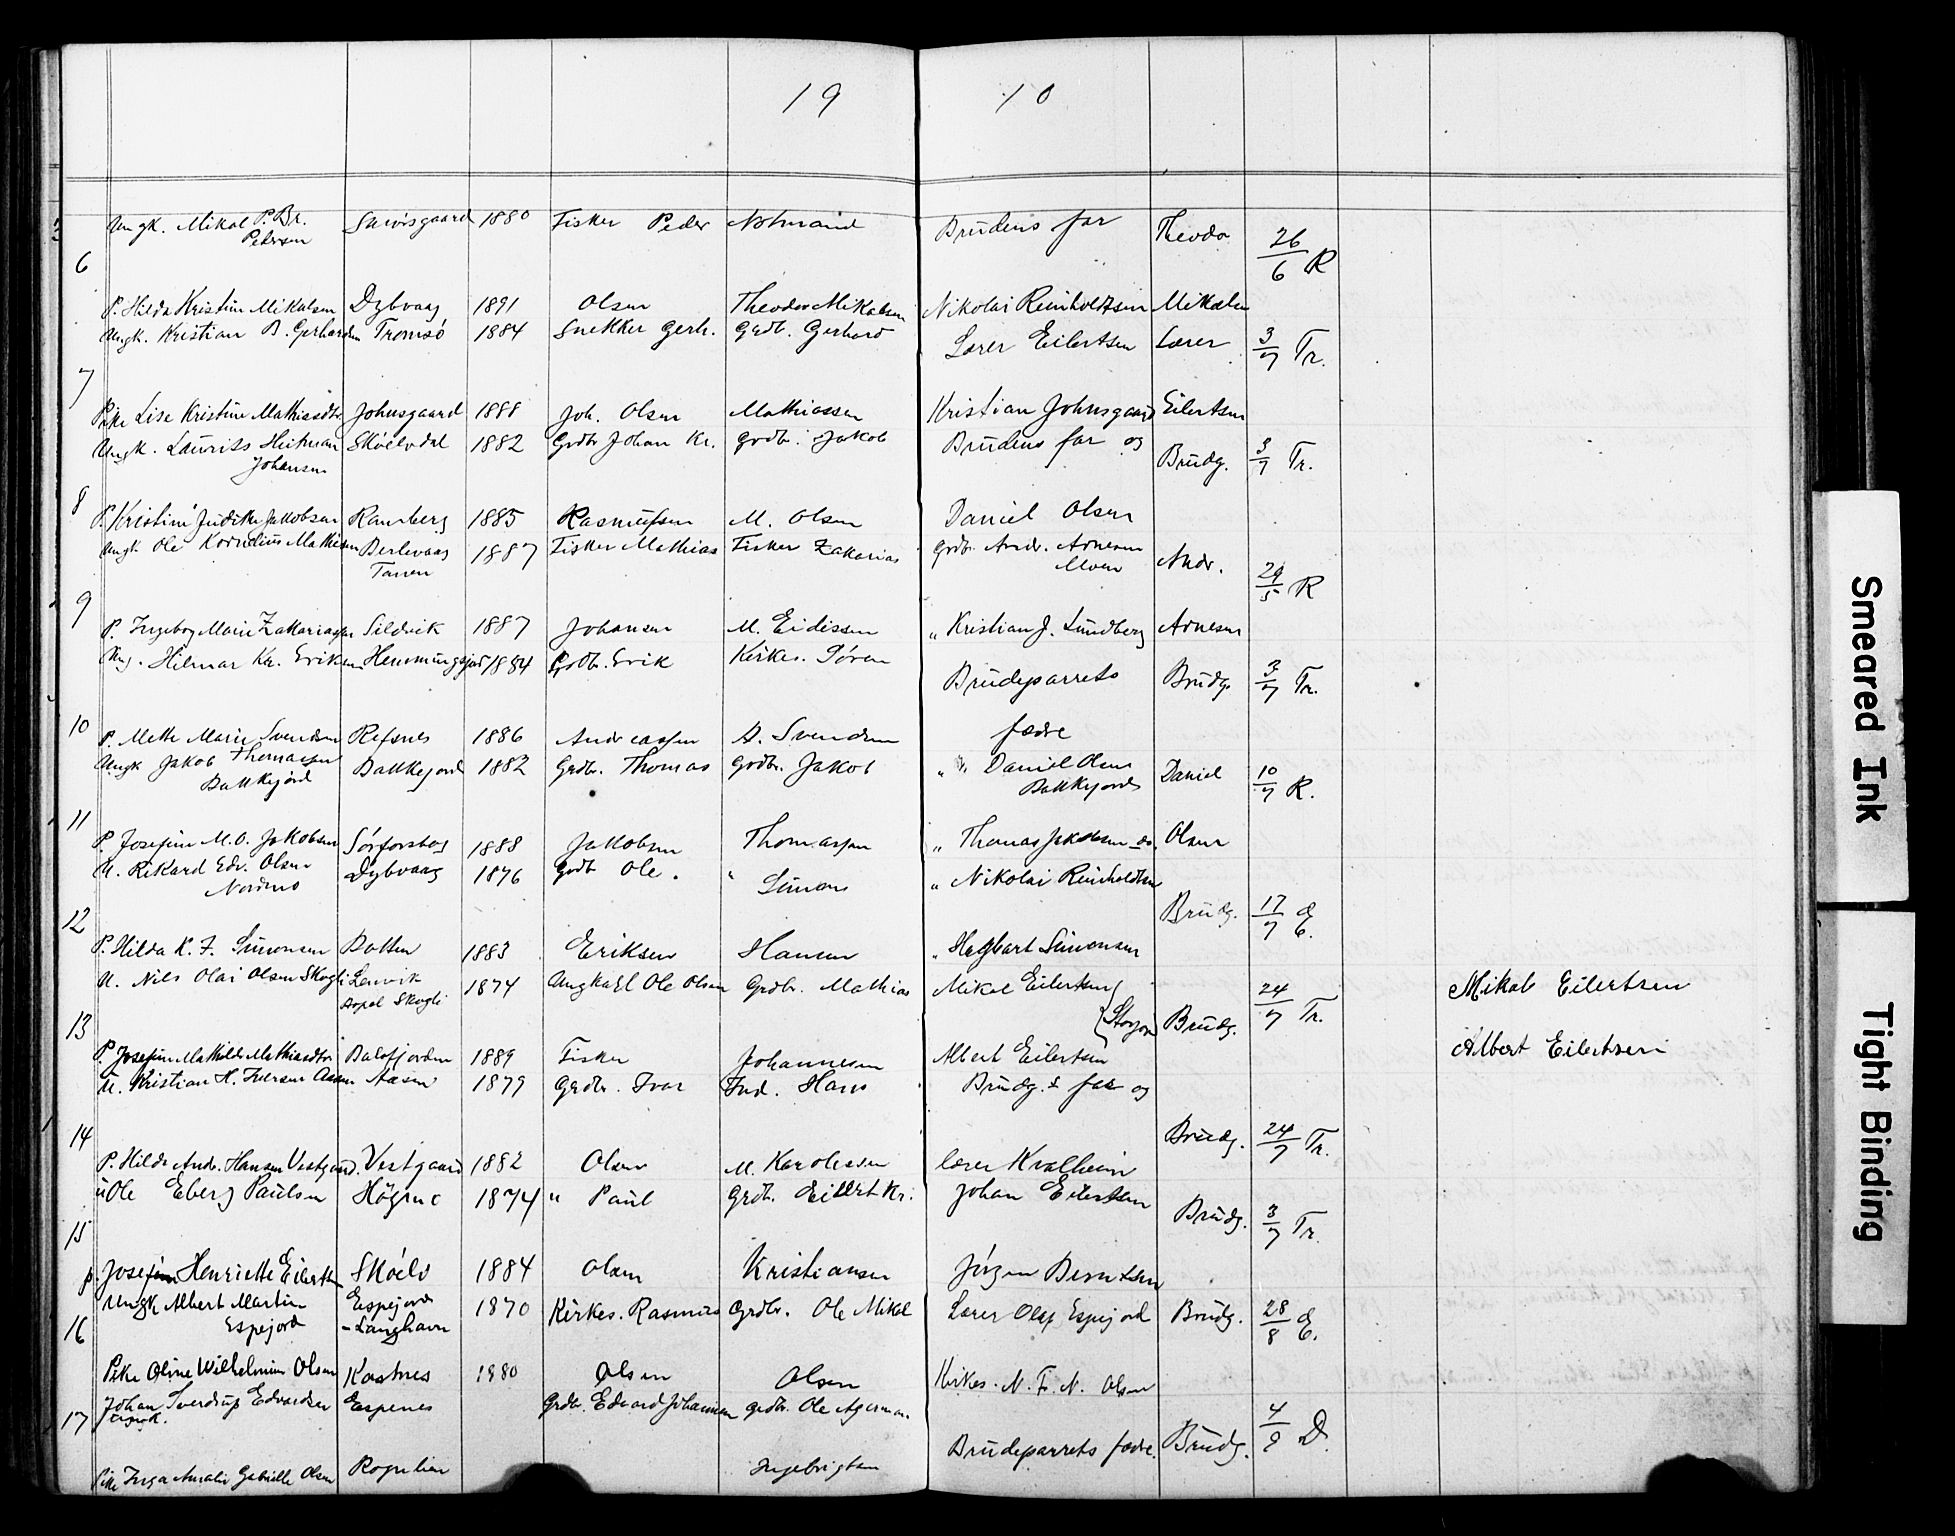 19 10
Ungk. Mikal P. Br. 1880 Fisker Peder Notmand Brudens far Theodor 26/6 R
Petersen
6
P. Hilda Kristine Mikalsen Dybvaag 1891 Olsen Theodor Mikalsen Nikolai Reinholdtsen Mikalsen
Ungk. Kristian B. Gerhardsen Tromsö 1884 Snekker Gerh. Grdb. Gerhard Lærer Eilertsen Lærer 3/7 Tr.
7
Pike Lise Kristine Mathiasdtr. Johnsgaard 1888 Joh. Olsen Mathiassen Kristian Johnsgaard Eilertsen
Ungk. Laurits Heitman Skóelvdal 1882 Grdbr Johan Kr. Grdb. Jakob Brudens far og Brudg. 3/7 Tr.
Johansen
8
P. Kristine Judithe Jakobsen Ramberg 1885 Rasmussen M. Olsen Daniel Olsen
Ungk Ole Kornelius Mathisen Berlevaag 1887 Fisker Mathias Fisker Zakarias Grdb. Andr. Arnesen Andr. 29/5 R
Tanen Moen
9
P. Ingeborg Marie Zakariassen Sildvik 1887 Johansen M. Eidissen " Kristian J. Lundberg Arnesen
Ung. Hilmar Kr. Eriksen Hemmingsjord 1884 Grdbr. Erik Kirkes. Sören Brudeparrets Brudg. 3/7 Tr.
10
P. Mette Marie Svendsen Refsnes 1886 Andreassen A. Svendsen fædre
Ungk Jakob Thomassen Bakkejord 1882 Grdbr. Thomas Grdbr. Jakob " Daniel Olsen Daniel 10/7 R.
Bakkejord Bakkejord
11
P. Josefine M. O. Jakobsen 1888 Jakobsen Thomassen " Thomas Jakobsen do. Olsen
U. Rikard Edv. Olsen Dybvaag 1876 Grdb Ole. " Simon " Nikolai Reinholdtsen Brudg. 17/7 E.
Nordmo
12
P. Hilda K. F. Simonsen Botten 1883 Eriksen Hansen " Hagbart Simonsen
U. Nils Olai Olsen Skogli Lenvik 1874 Ungkarl Ole Olsen Grdbr. Mathias Mikal Eilertsen Brudg. 24/7 Tr. Mikal Eilertsen
Aspel Skogli
13
P. Josefine Mathilde Mathiasdtr Balsfjorden 1889 Fisker Johannesen Albert Eilertsen Albert Eilertsen
U. Kristian H. Iversen Aasen Aasen 1879 Grdbr. Ivar Ind. Hans Brudg.s far og Brudg. 24/7 Tr.
14
P. Hilda Andr. Hansen Vestgaard. Vestgaard 1882 Olsen M. Karolussen lærer Kvalheim
U Ole Eberg Paulsen Högmo 1874 " Paul Grdb. Eilert Kr. Johan Eilertsen Brudg. 3/7 Tr.
15
P. Josefine Henriette Eilertsen Skóelv 1884 Olsen Kristiansen Jörgen Berntsen
Ungk Albert Martin Espejord 1870 Kirkes. Rasmus Grdbr. Ole Mikal Lærer Olaf Espejord Brudg. 28/8 E.
Espejord - Langhavn
16
Pike Oline Wilhelmine Olsen Kastnes 1880 Olsen Olsen Kirkes. N. F. N. Olsen
Johan Sverdrup Edvardsen Espenes Grdbr. Edvard Johannesen Grdbr. Ole Agerman
Ungk.
17 Brudeparrets fædre. Brudg. 4/9 D.
Pike Inga Amalie Gabrielle Olsen Rognlien Ingebrigtsen
Smeared Ink
Tight Binding